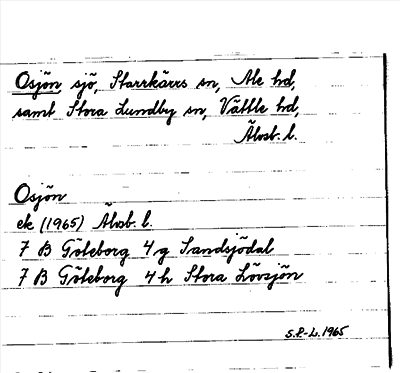 Osjön sjö, Starrkärrs sn, Ale hd,
samt Stora Lundby sn, Vättle hd,
Älvsb. l.
Osjön
ek (1965) Älvsb. l.
7 B Göteborg 4g Sandsjödal
7 B Göteborg 4h Stora Lövsjön
S.P-L. 1965